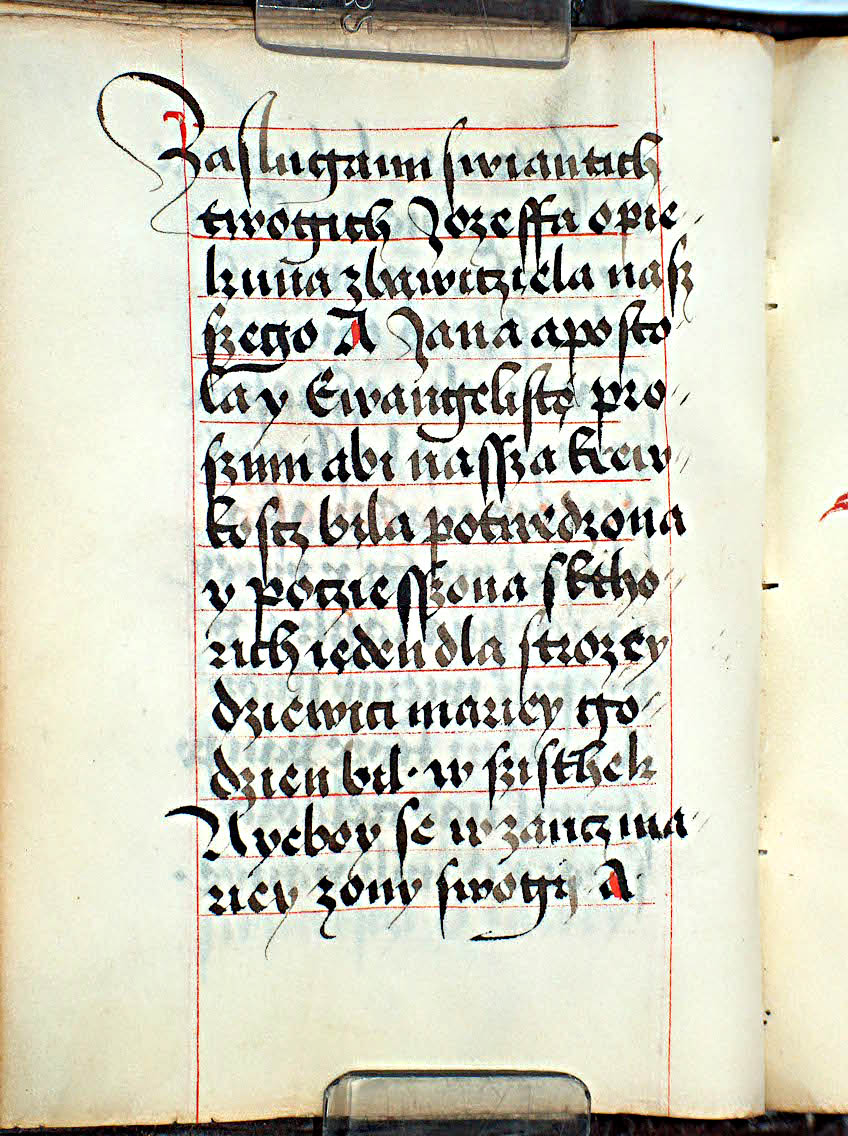 Zaslugami swiantich
twogich Jozeffa opie-
kuna zbawicziela nasz
szego A Jana aposto-
la y Ewangelistę pro-
szimi abi nassza krew-
kostz bila potwiedzona
y poczieszona sktho-
rich ięden dla strozey
dziewici mariey go-
dzien bil. w szisthek
Nyeboy se wzancz ma-
riey zony swogij A